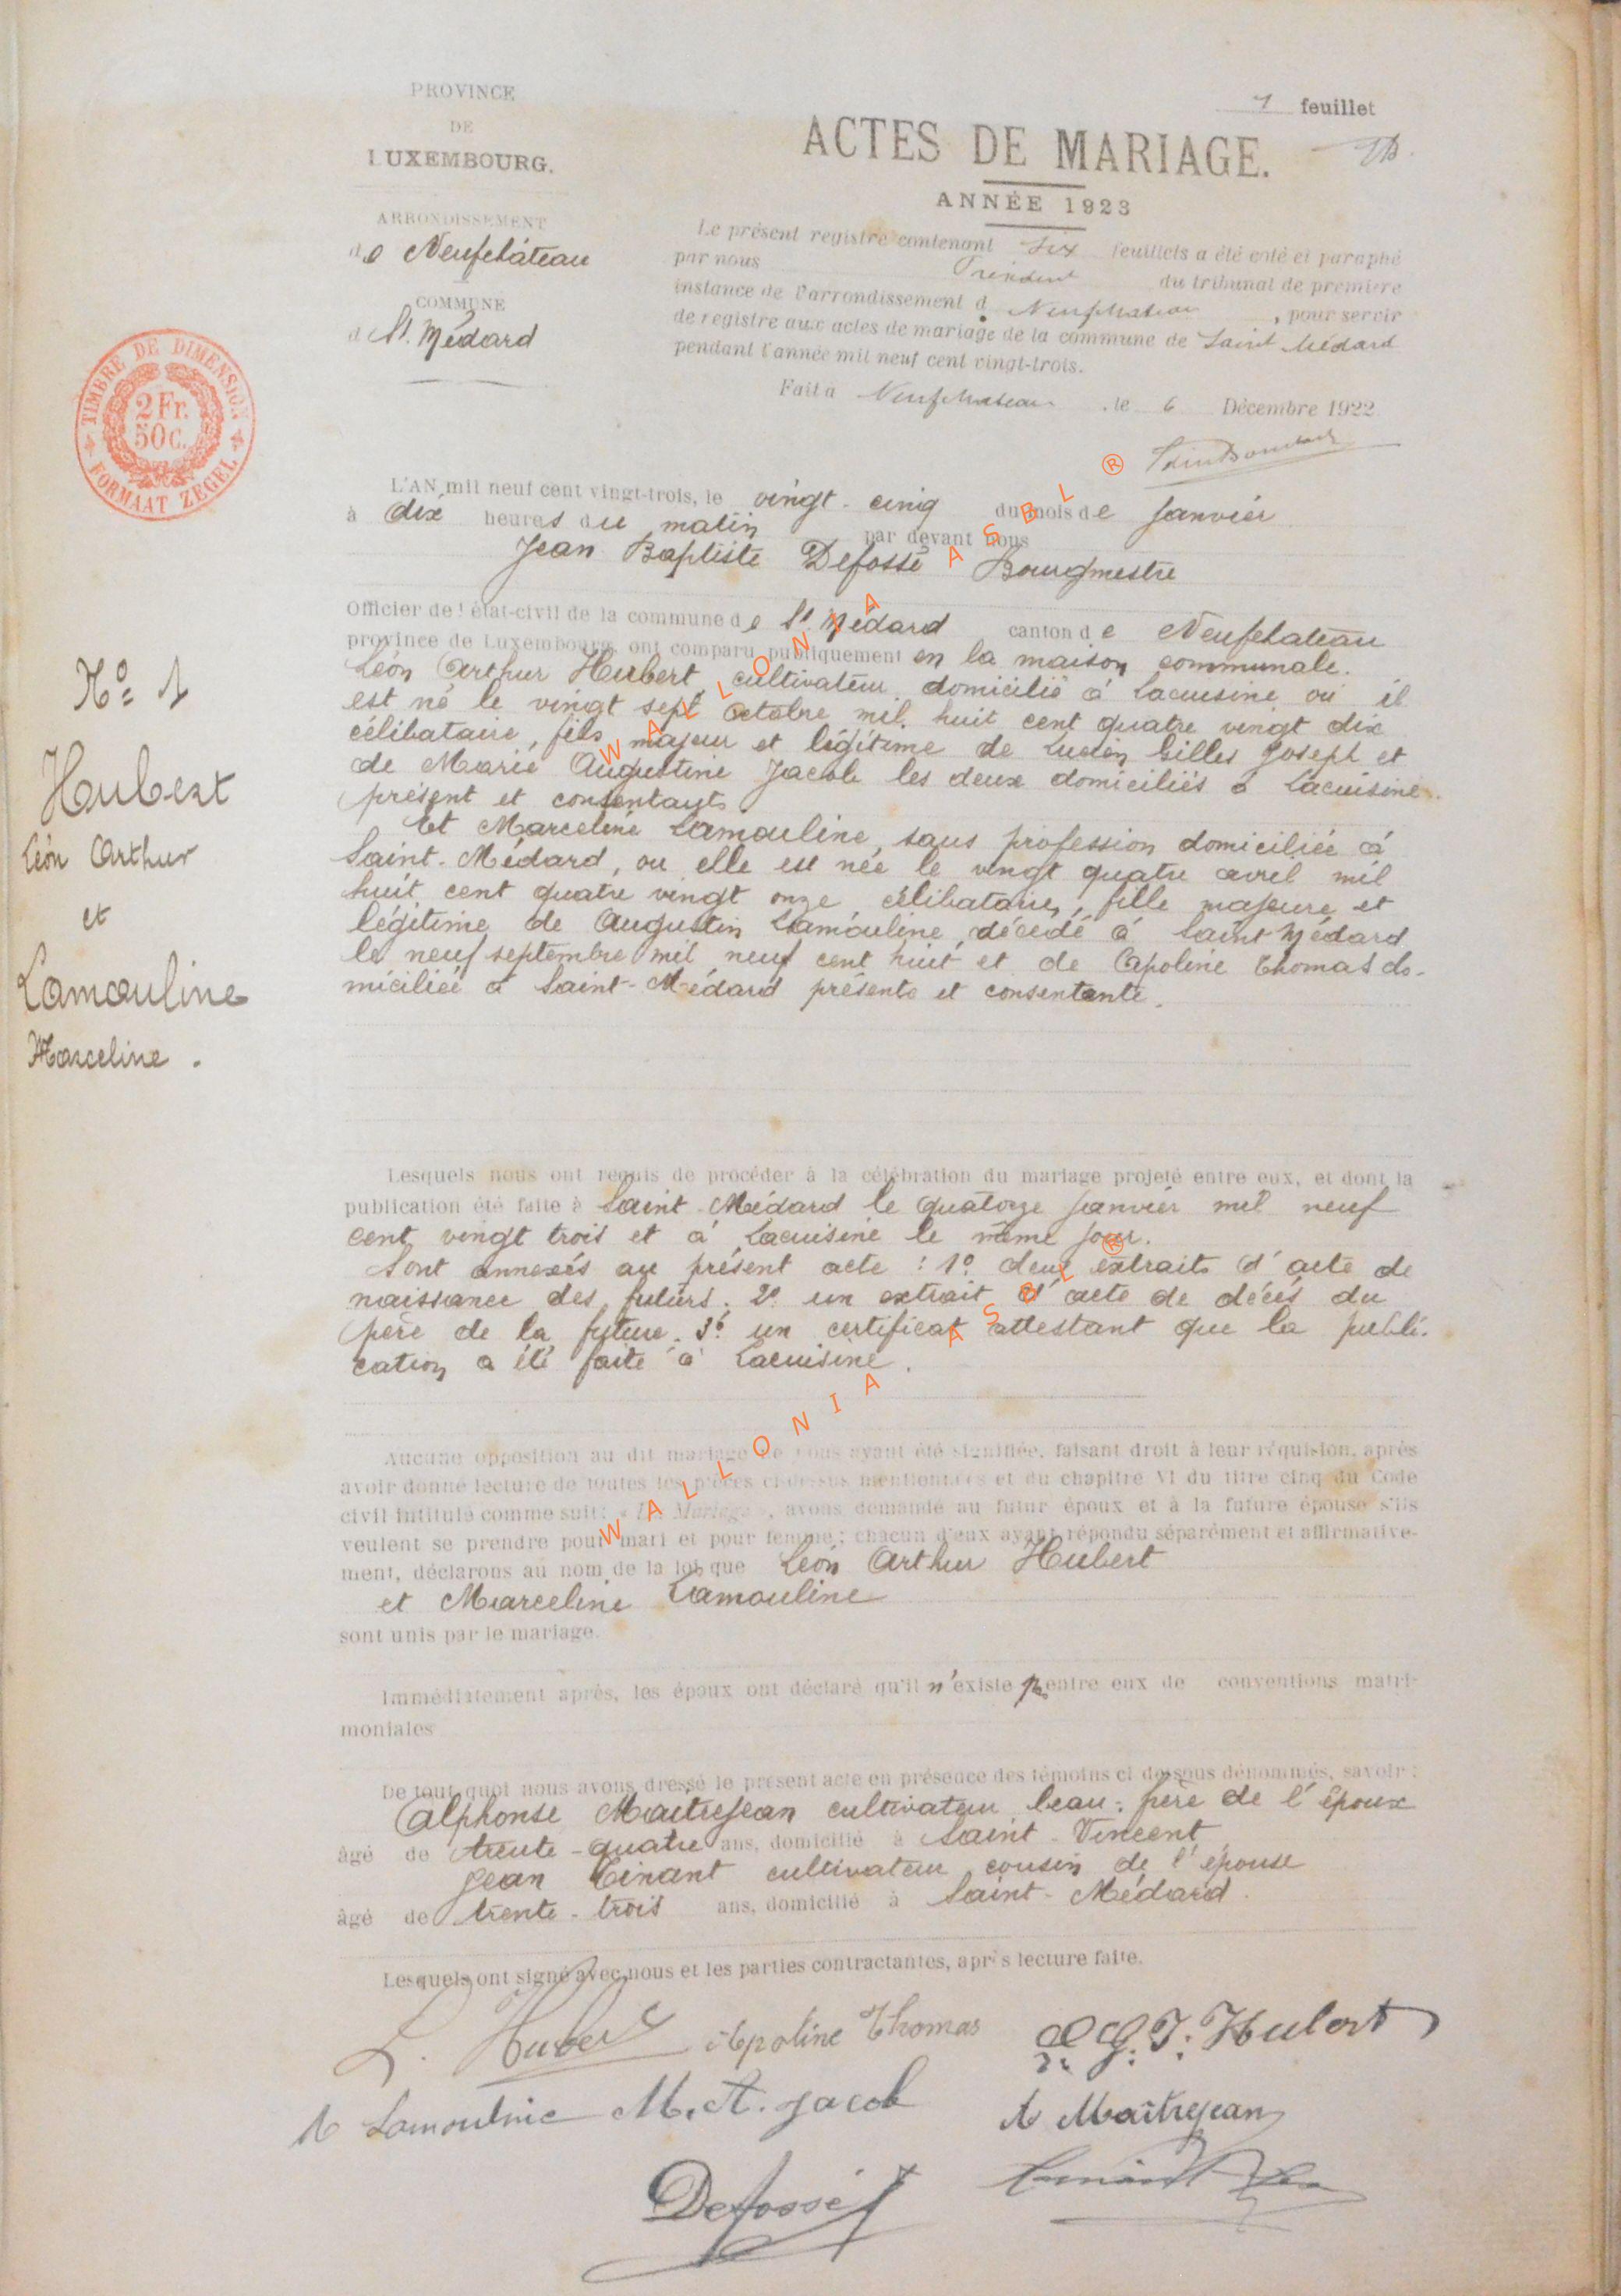 PROVINCE
DE
LUXEMBOURG.
ARRONDISSEMENT
de Neufchâteau
COMMUNE
d St. Médard
1 feuillet
ACTES DE MARIAGE.
ANNÉE 1923
Le présent registre contenant six feuillets a été coté et paraphé
par nous Président du tribunal de première
instance de l'arrondissement d Neufchateau , pour servir
de registre aux actes de mariage de la commune de Saint Médard
pendant l'année mil neuf cent vingt-trois.
Fait à Neufchateau , le 6 Décembre 1922
TIMBRE DE DIMENSION
2 Fr.
50 C.
FORMAAT ZEGEL
No 1
Hubert
Léon Arthur
et
Lamouline
Marceline.
L'AN mil neuf cent vingt-trois, le vingt-cinq du mois de Janvier
à dix heures du matin par devant nous
Jean Baptiste Defossé Bourgmestre
Officier de l'état-civil de la commune de St Médard canton de Neufchateau
province de Luxembourg, ont comparu publiquement en la maison communale.
Léon Arthur Hubert, cultivateur, domicilié à Lacuisine où il
est né le vingt sept octobre mil huit cent quatre vingt dix
célibataire, fils majeur et légitime de Lucien Gilles Joseph et
de Marie Augustine Jacob les deux domiciliés à Lacuisine.
présent et consentants
Et Marceline Lamouline, sans profession domiciliée à
Saint-Médard, ou elle est née le vingt quatre avril mil
huit cent quatre vingt onze célibataire, fille majeure et
légitime de Augustin Lamouline, décédé à Saint Médard
le neuf septembre mil neuf cent huit et de Apoline Thomas do-
miciliée à Saint-Médard présente et consentante.
Lesquels nous ont requis de procéder à la célébration du mariage projeté entre eux, et dont la
publication été faite à Saint-Médard le quatorze janvier mil neuf
cent vingt trois et à Lacuisine le même jour.
Sont annexés au présent acte : 1o deux extraits d'acte de
naissance des futurs. 2o un extrait d'acte de décès du
père de la future. 3o un certificat attestant que la publi-
cation a été faite à Lacuisine.
Aucune opposition au dit mariage ne nous ayant été signifiée, faisant droit à leur réquision, après
avoir donné lecture de toutes les pièces ci-dessus mentionnées et du chapitre VI du titre cinq du Code
civil intitulé comme suit: « Du Mariage », avons demandé au futur époux et à la future épouse s'ils
veulent se prendre pour mari et pour femme; chacun d'eux ayant répondu séparément et affirmative-
ment, déclarons au nom de la loi, que Léon Arthur Hubert
et Marceline Lamouline
sont unis par le mariage.
Immédiatement après, les époux ont déclaré qu'il n'existe pas entre eux de conventions matri-
moniales
De tout quoi nous avons dressé le présent acte en présence des témoins ci-dessous dénommés, savoir :
Alphonse Maitrejean cultivateur beau-père de l'époux
âgé de trente-quatre ans, domicilié à Saint-Vincent
Jean Tinant cultivateur cousin de l'épouse
âgé de trente-trois ans, domicilié à Saint-Médard.
Lesquels ont signé avec nous et les parties contractantes, après lecture faite.
L. Hubert Apoline Thomas L. G. J. Hubert
M Lamouline M. A. Jacob A Maîtrejean
Defossé
WALLONIA ASBL ®
WALLONIA ASBL ®